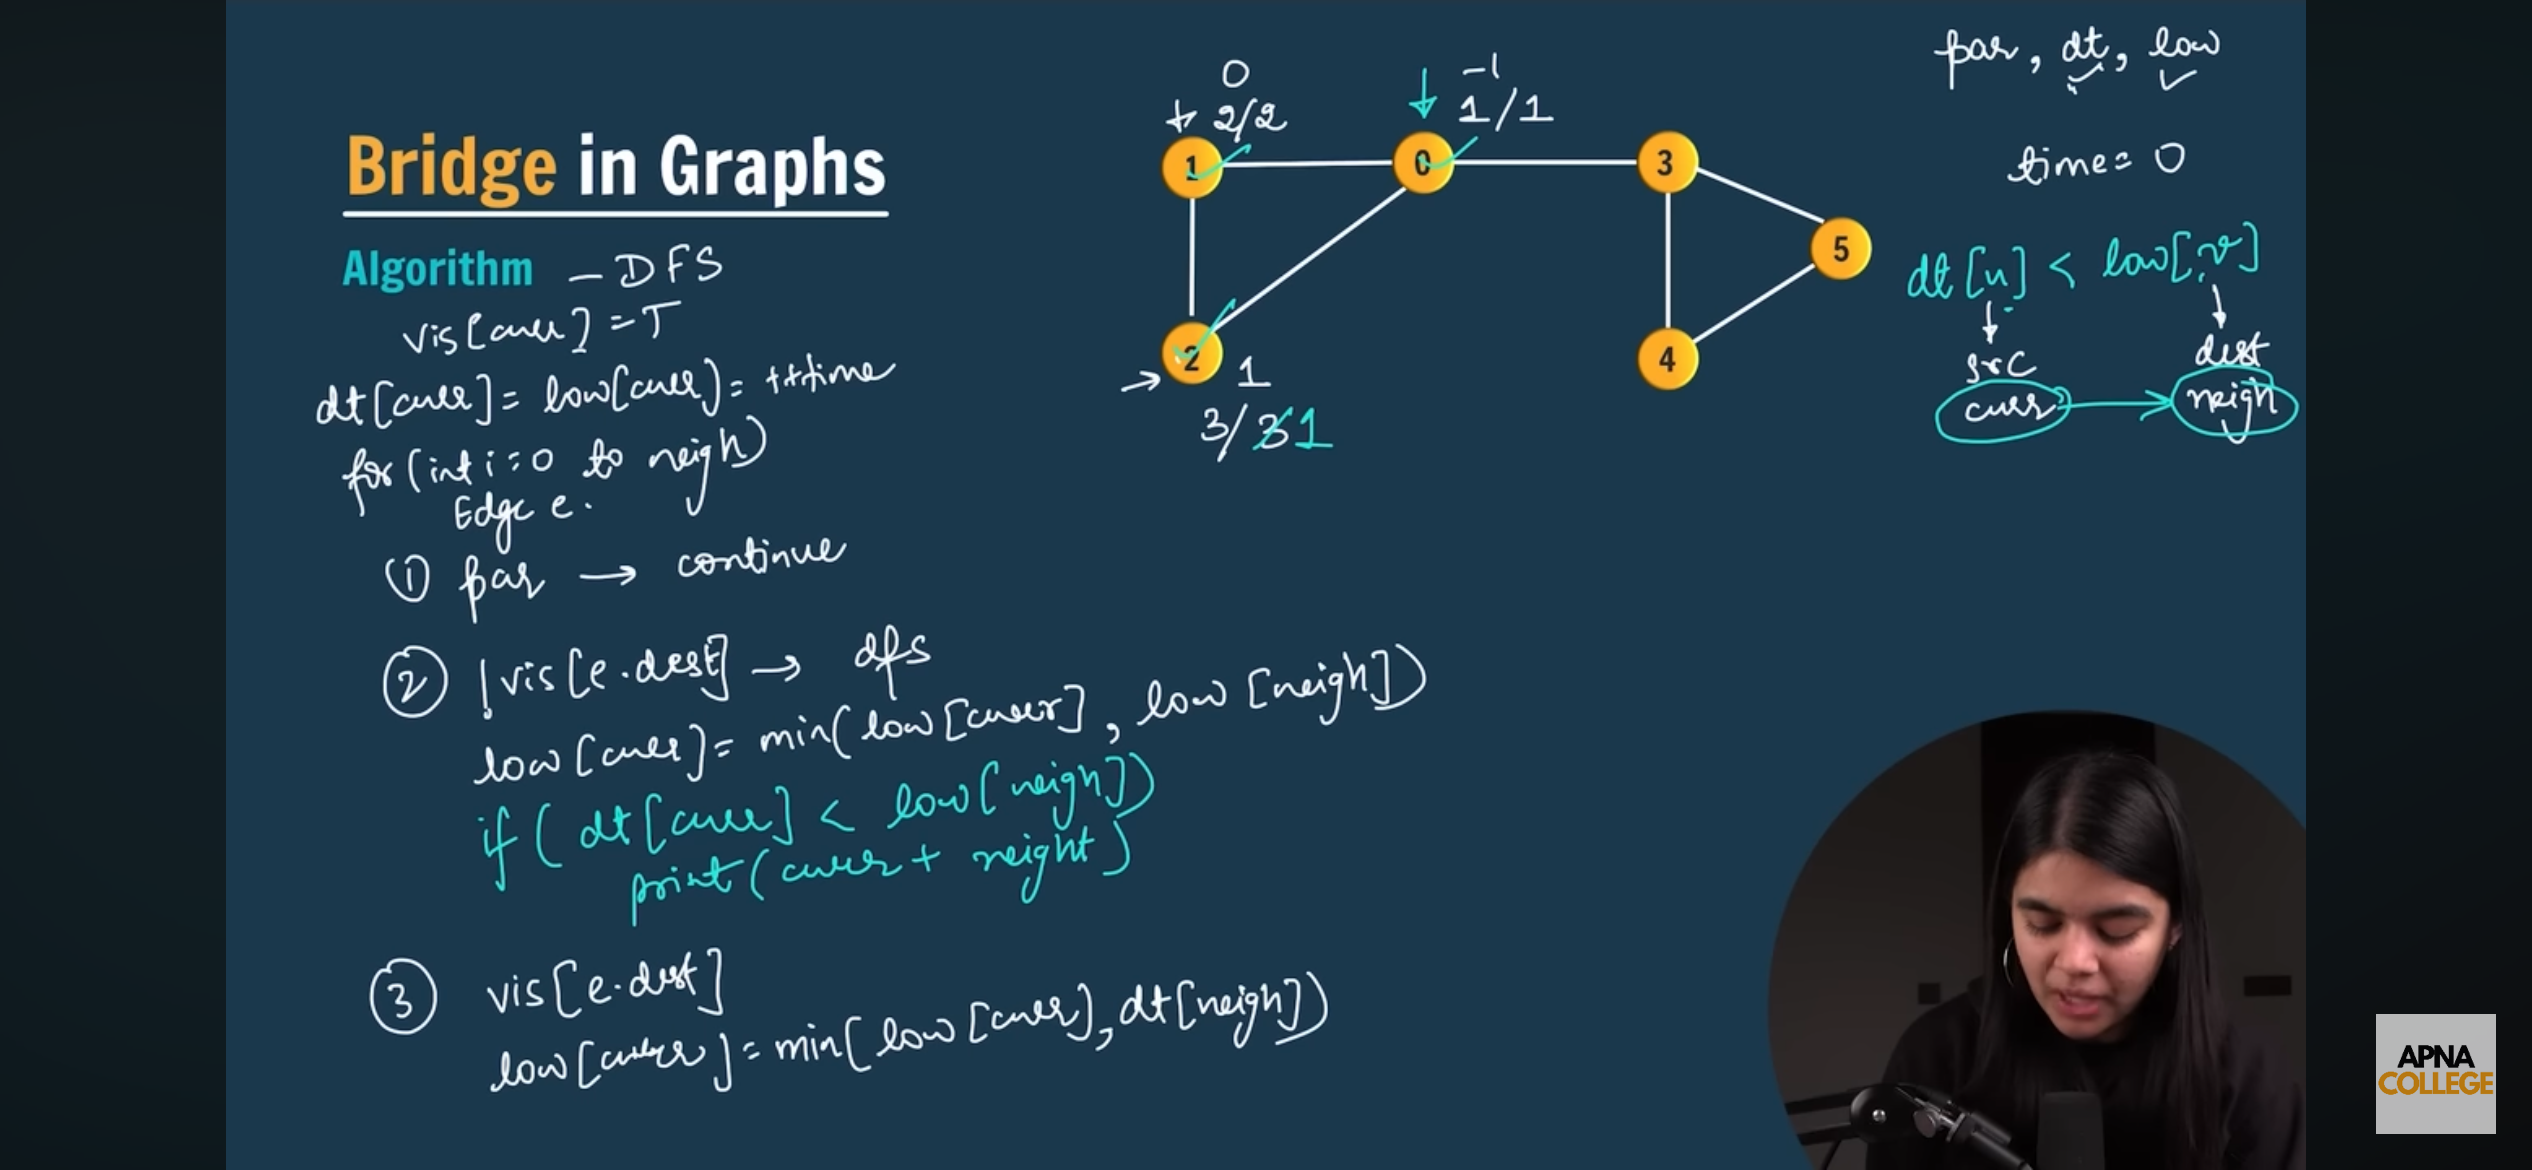 Bridge in Graphs
Algorithm - DFS
vis[curr] = T
dt[curr] = low[curr] = ++time
for (int i=0 to neigh)
Edge e.
① par → continue
② !vis[e.dest] → dfs
low[curr] = min(low[curr], low[neigh])
if (dt[curr] < low[neigh])
print(curr + neight)
③ vis[e.dest]
low[curr] = min(low[curr], dt[neigh])
0
2/2
-1
1/1
1
0
3
5
2
4
1
3/31
par, dt, low
time = 0
dt[u] < low[v]
src
dest
curr → neigh
APNA
COLLEGE